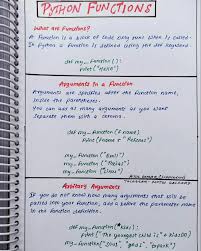 PYTHON FUNCTIONS
What are Functions?
A function is a block of code only runs when it is called.
In Python a function is defined using the def keyword.
def my_function():
print("Hello")
Arguments in a Function
Arguments are specified after the function name,
inside the parentheses.
You can add as many arguments as you want
separate them with a comma.
def my_function(fname)
print(fname + "Refsnes")
my_function("Emil")
my_function("Tobias")
my_function("Linus")
Arbitary Arguments
If you do not know how many arguments that will be
passed into your function, add a * before the parameter name
in the function definition.
def my_function(*kids):
print("The youngest child is" + kids[2])
my_function("Emil", "Tobias", "Linus")